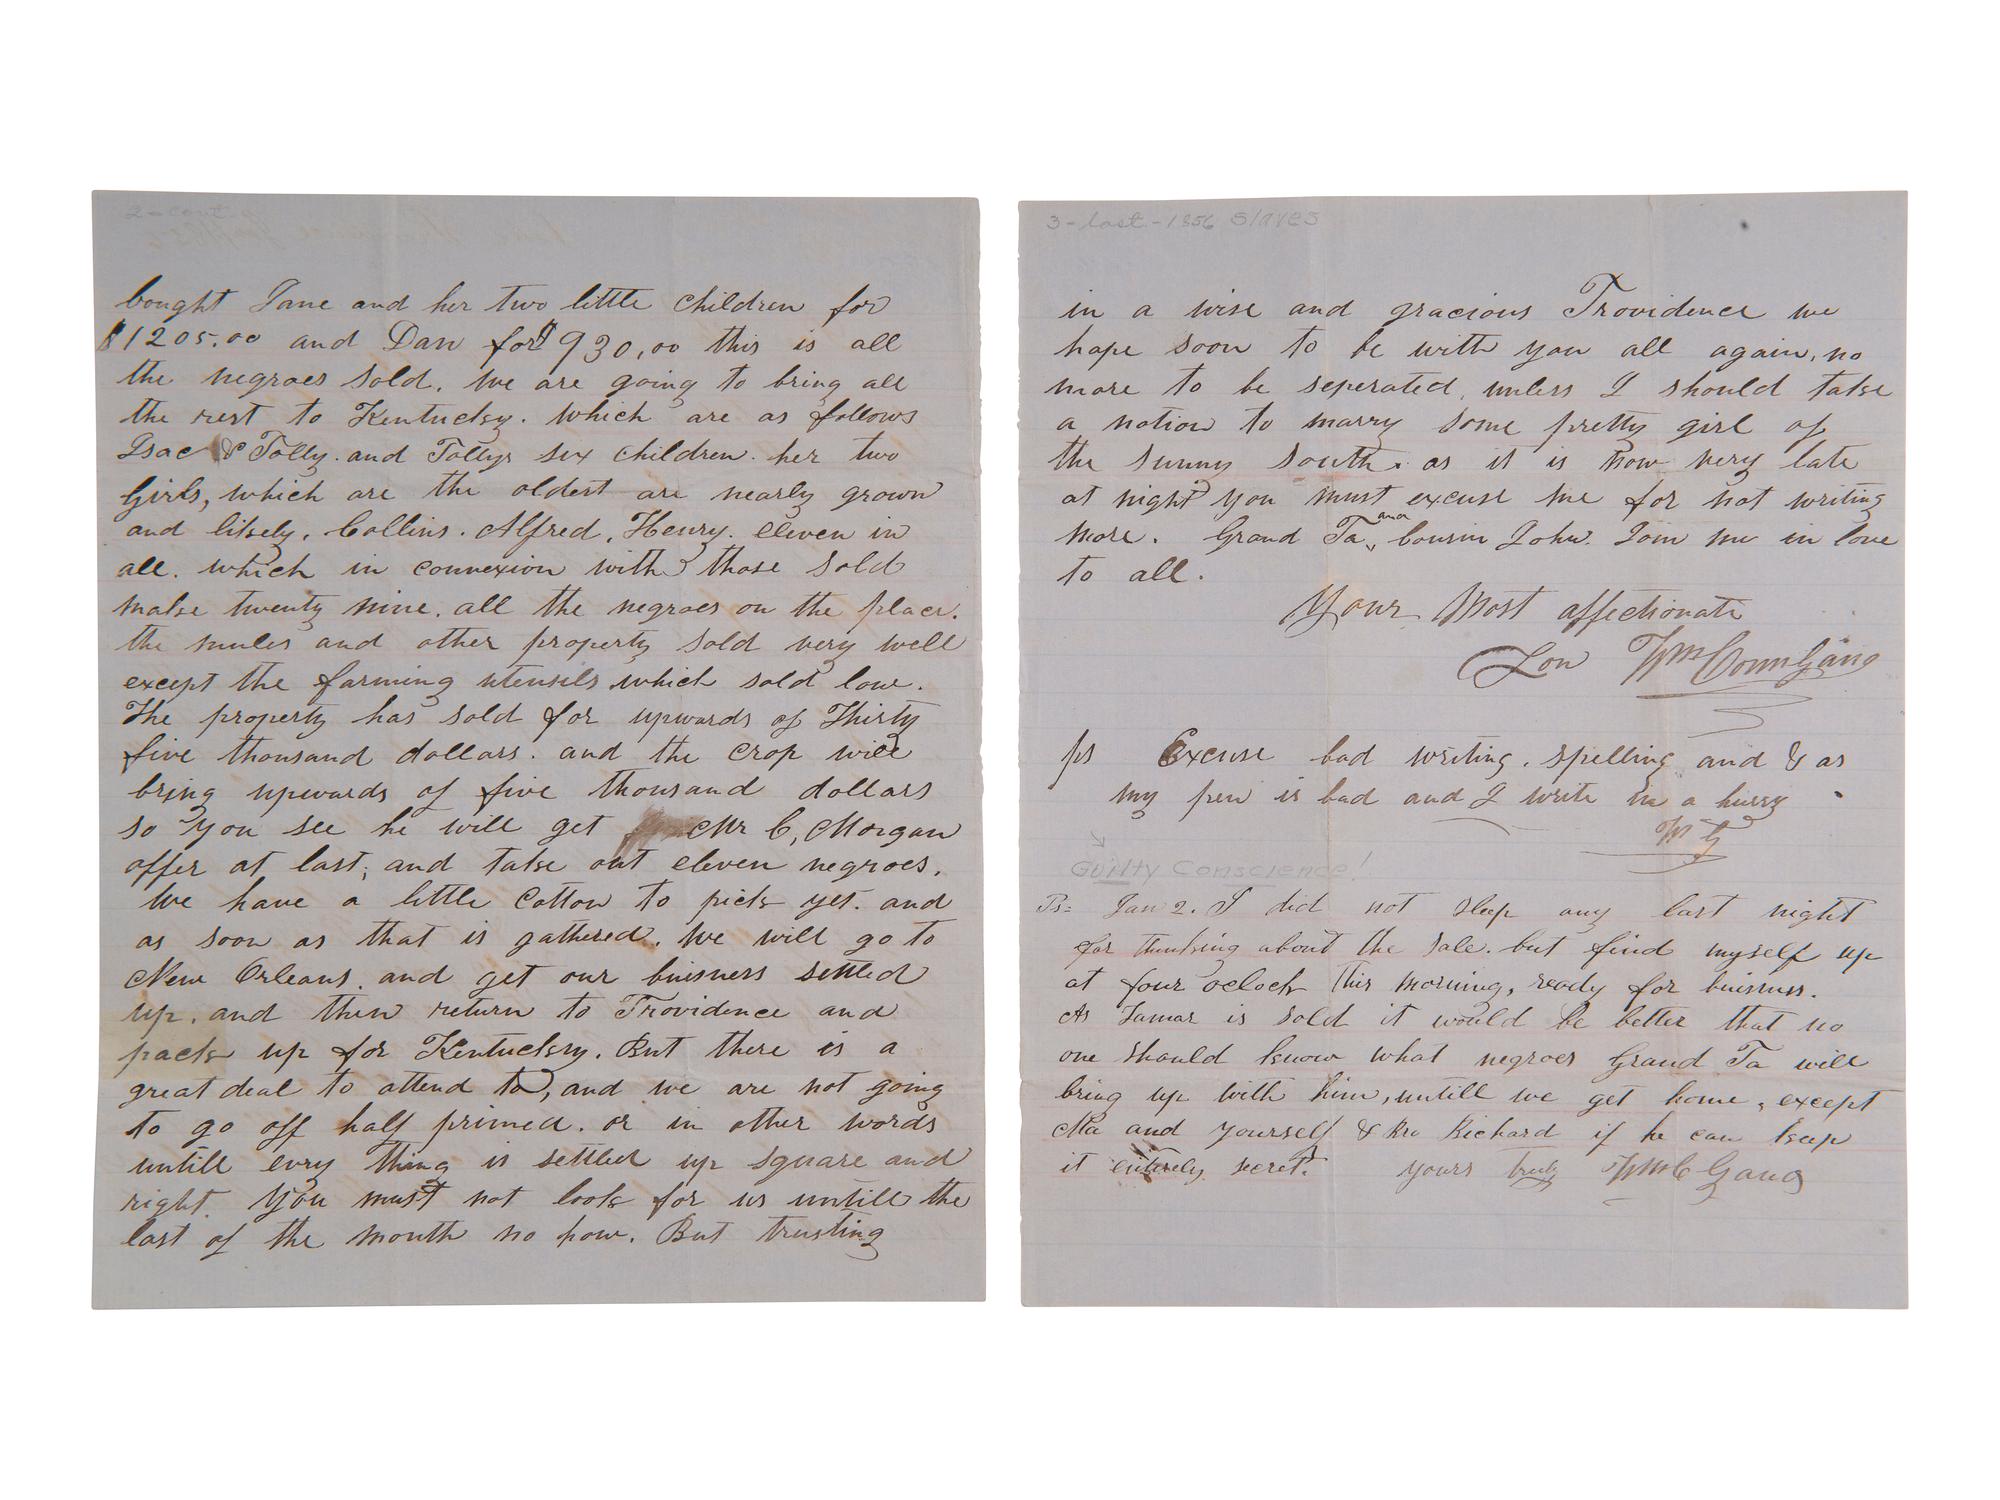 2 - cont.
bought Jane and her two little children for
$1205.00 and Dan for $930,00 this is all
the negroes sold. We are going to bring all
the rest to Kentucky. Which are as follows
Isac & Polly. and Pollys six children. her two
Girls, which are the oldest are nearly grown
and likely, Collins. Alfred, Henry. eleven in
all. which in connexion with those sold
make twenty nine. all the negroes on the place.
the mules and other property sold very well
except the farming utensils which sold low.
The property has sold for upwards of Thirty
five thousand dollars. and the crop will
bring upwards of five thousand dollars
so you see he will get Mr C, Morgan
offer at last; and take out eleven negroes.
We have a little Cotton to pick yet. and
as soon as that is gathered. We will go to
New Orleans. and get our buisness settled
up. and then return to Providence and
pack up for Kentucky. But there is a
great deal to attend to, and we are not going
to go off half primed. or in other words
untill evry thing is settled up square and
right. You must not look for us untill the
last of the month no how. But trusting
3 - last - 1856 Slaves
in a wise and gracious Providence we
hope soon to be with you all again, no
more to be seperated, unless I should take
a notion to marry some pretty girl of
the sunny south. as it is now very late
at night you must excuse me for not writing
more. Grand Pa and cousin John. Join me in love
to all.
Your Most affectionate
Son Wm Conn Gano
ps Excuse bad writing. spelling and & as
my pen is bad and I write in a hurry
W G
Guilty Conscience!
Ps= Jan 2. I did not sleep any last night
for thinking about the sale. but find myself up
at four oclock this morning, ready for buisness.
As Lamar is sold it would be better that no
one should know what negroes Grand Pa will
bring up with him, untill we get home, except
Ma and yourself & Bro Richard if he can keep
it entirely secret. yours truly Wm C Gano